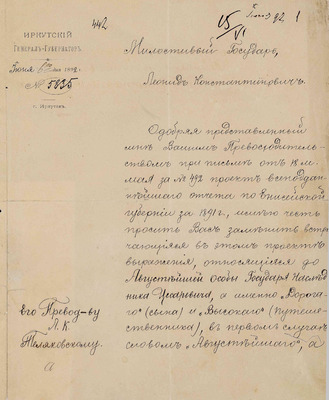 442
15/VI
92
1
ИРКУТСКІЙ
Генералъ-Губернаторъ
Іюня 1892 г.
№ 5035
г. Иркутскъ.
Милостивый Государь,
Леонидъ Константиновичъ.
Одобряя представленный
мнѣ Вашимъ Превосходитель-
ствомъ при письмѣ отъ 18
мая за № 492 проектъ всеподдан-
нѣйшаго отчета по Енисейской
губерніи за 1891 г., имѣю честь
просить Васъ замѣнить встрѣ-
чающіяся въ этомъ проектѣ
выраженія, относящіяся до
Августѣйшей особы Государя Наслѣд-
ника Цесаревича, а именно „Дорога-
го“ (сына) и „Высокаго“ (путеше-
ственника), въ первомъ случаѣ
словомъ „Августѣйшаго“, а
Его Превод-ву
Л. К.
Теляковскому.